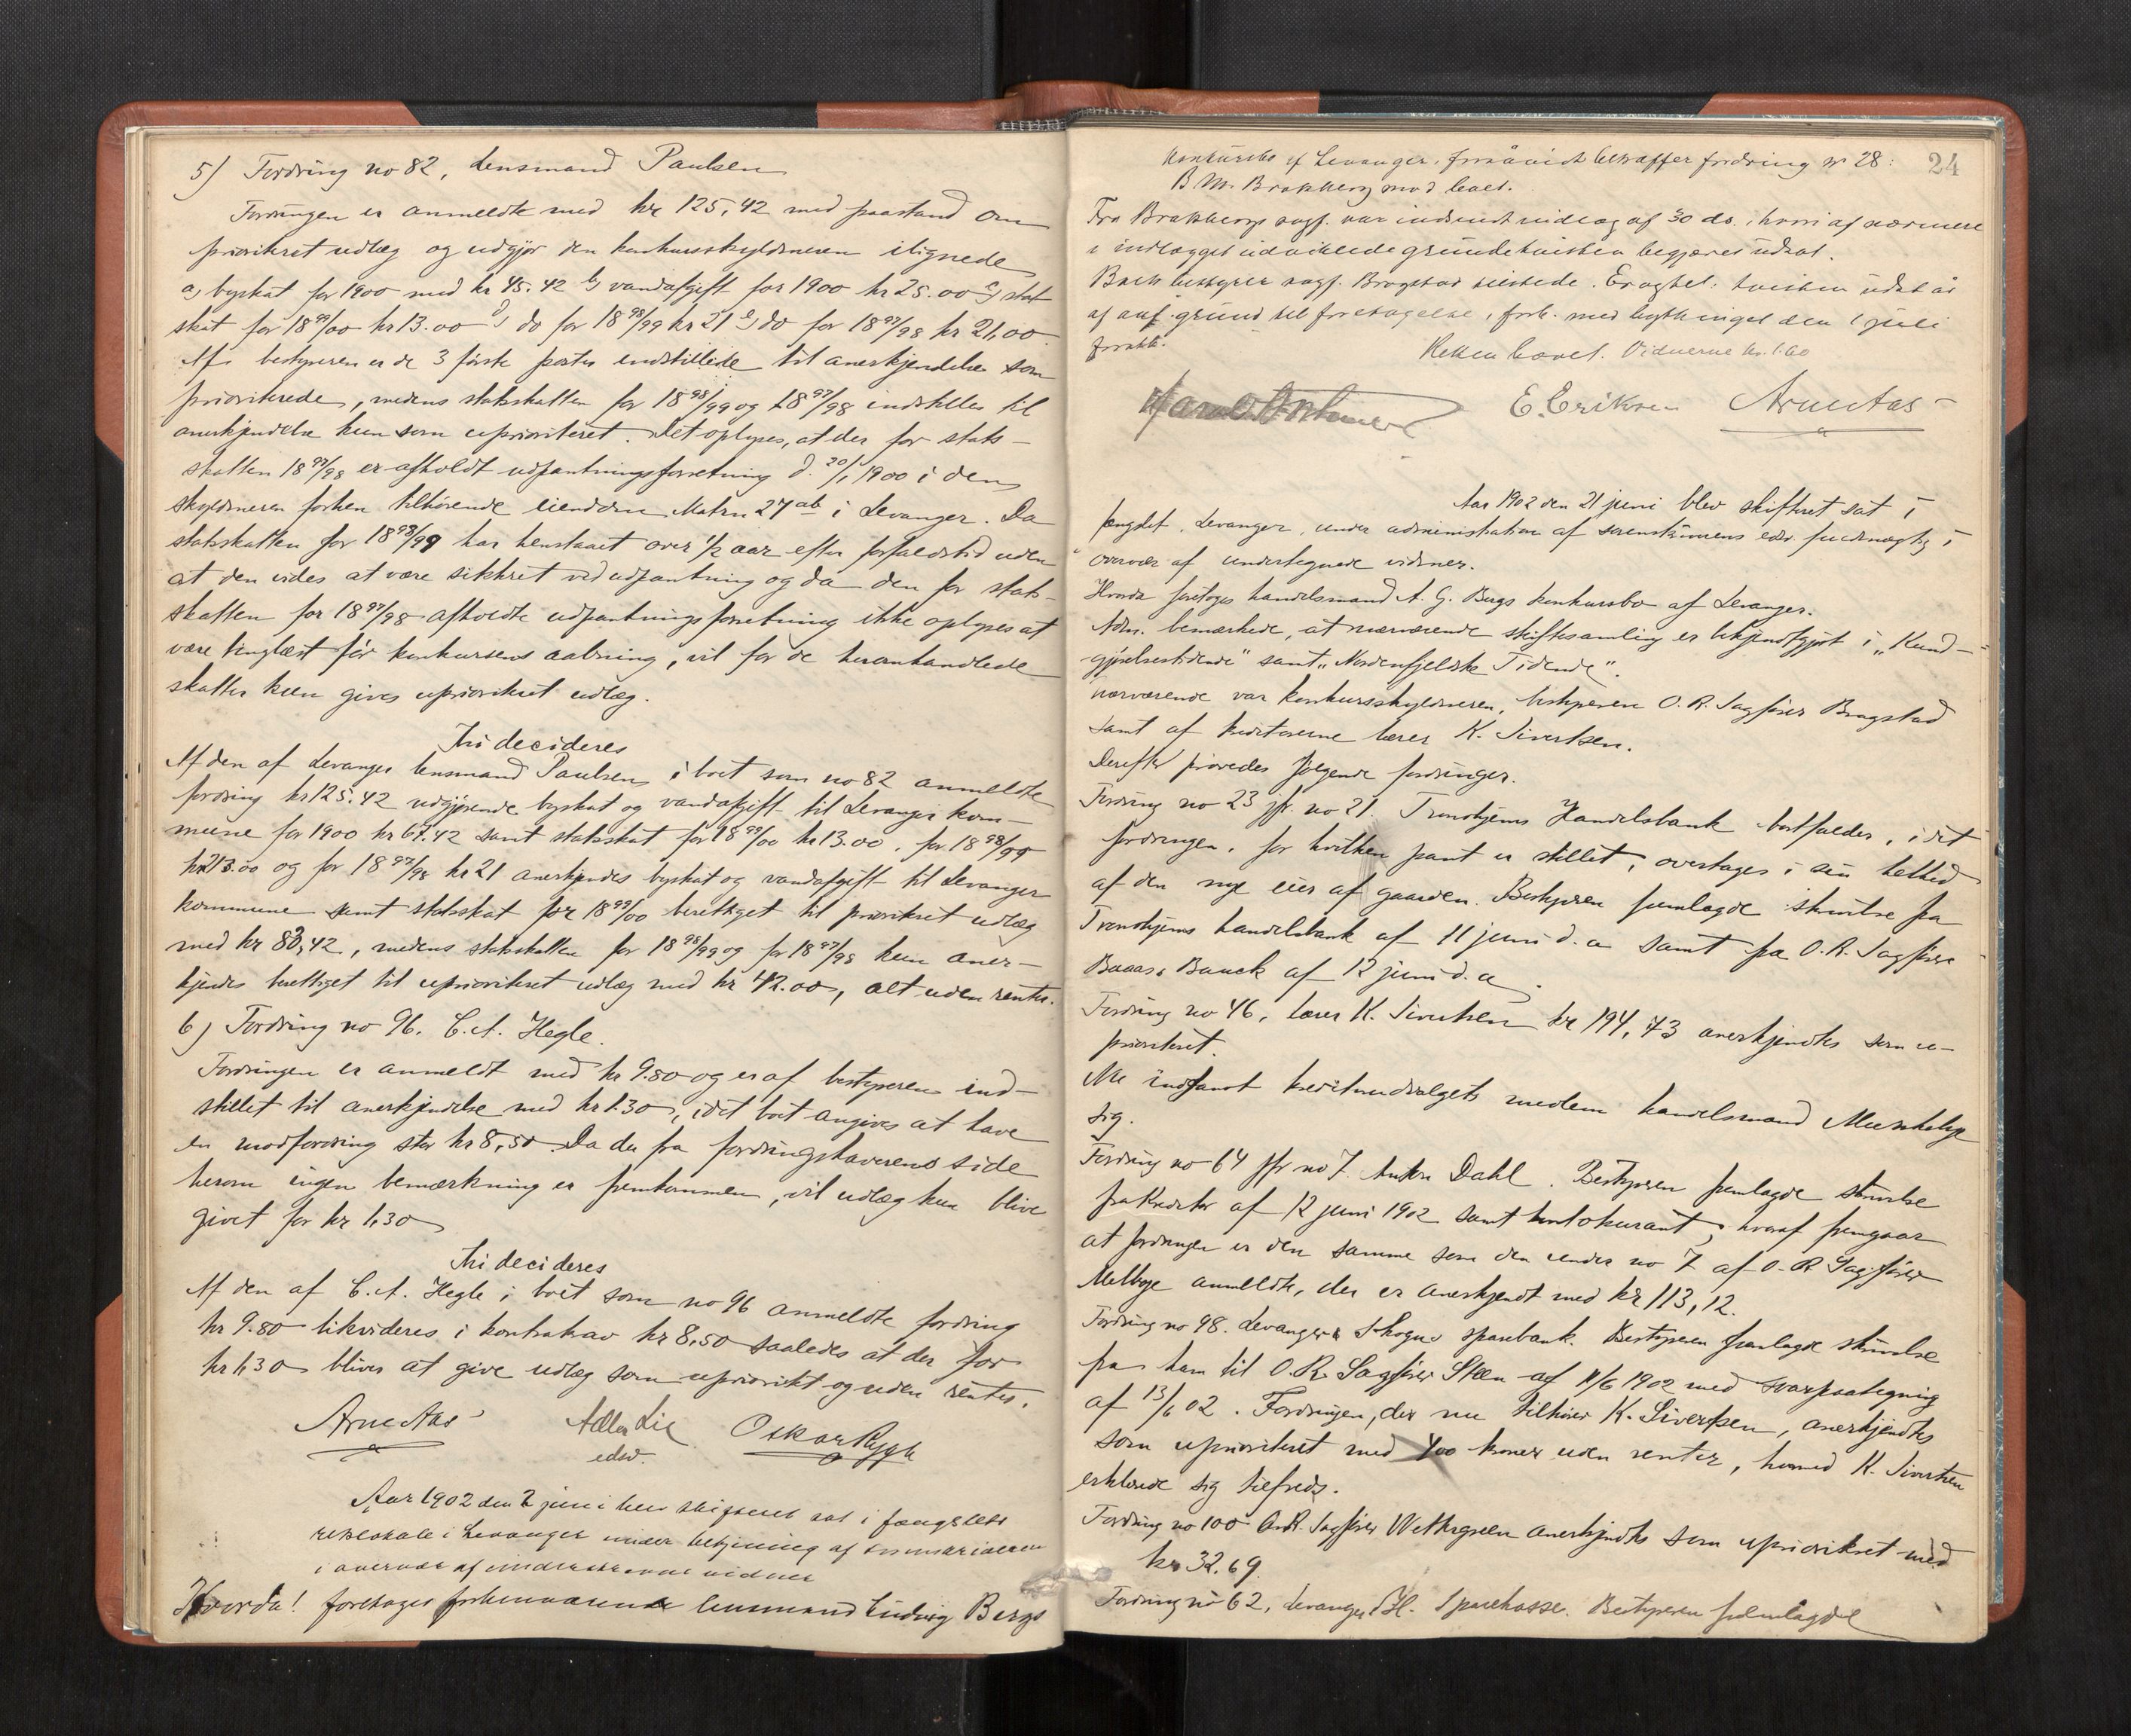 5) Fordring no 82, Lensmand Paulsen
Fordringen er anmeldte med kr 125,42 med paastand om
prioritert udlæg og udgjør den konkursskyldneren ilignede
a) byskat for 1900 med kr 45.42 b) vandafgift for 1900 kr 25.00 c) stat
skat for 18 99/00 kr 13.00 d) do for 18 98/99 kr 21 e) do for 18 97/98 kr 21,00.
Af bestyreren er de 3 første poster indstillede til anerkjendelse som
prioriterede, medens statsskatten for 18 98/99 og 18 97/98 indstilles til
anerkjendelse kun som uprioriteret. Det oplyses, at der for stats-
skatten 18 97/98 er afholdt udpantningsforretning d. 20/1 1900 i den
skyldneren forhen tilhørende eiendom Matrn 27 ab i Levanger. Da
statsskatten for 18 98/99 har henstaaet over 1/2 aar efter forfaldstid uden
at den vides at være sikkret ved udpantning og da den for stats-
skatten for 18 97/98 afholdte udpantningsforretning ikke oplyses at
være tinglæst før konkursens aabning, vil for de heromhandlede
skatter kun gives uprioritert udlæg.
Thi decideres
Af den af Levanger lensmand Paulsen i boet som no 82 anmeldte
fordring kr 125.42 udgjørende byskat og vandafgift til Levanger kom-
mune for 1900 kr 67.42 samt statsskat for 18 99/00 kr 13.00, for 18 98/99
kr 21.00 og for 18 97/98 kr 21 anerkjendes byskat og vandafgift til Levanger
kommune samt statsskat for 18 99/00 berettiget til prioritert udlæg
med kr 83,42, medens statsskatten for 18 98/99 og for 18 97/98 kun aner-
kjendes berettiget til uprioritert udlæg med kr 42.00, alt uden renter.
6) Fordring no 96. C. A. Hegle.
Fordringen er anmeldt med kr 9.80 og er af bestyreren ind-
stillet til anerkjendelse med kr 1.30, idet boet angives at have
en modfordring stor kr 8,50. Da der fra fordringshaverens side
herom ingen bemærkning er fremkommen, vil udlæg kun blive
givet for kr 1,30
Thi decideres
Af den af C. A. Hegle i boet som no 96 anmeldte fordring
kr 9.80 likvideres i kontrakrav kr 8,50 saaledes at der for
kr 1,30 bliver at give udlæg som uprioritert og uden renter.
Arne Aas Lie Oskar Rygh
edsv.
Aar 1902 den 2 juni blev skifteret sat i fængslets
retslokale i Levanger under betjening af sorenskriveren
i overvær af underskrevne vidner
Hvorda! foretoges forhenværende lensmand Ludvig Bergs
24
konkursbo af Levanger, forsåvidt betræffer fordring nr 28:
B. M. Brakberg mod boet.
Fra Brakbergs sagf. var indsendt indlæg af 30 ds. hvori af nærmere
i indlægget udviklede grunde tvisten begjæres udsat.
Boets bestyrer sagf. Bragstad tilstede. Eragtet: tvisten udstår
af anf. grund til foretagelse i forb. med bythinget den 1 juli
førstk.
Retten hævet. Vidnerne kr. 1.60
E. Eriksen Arne Aas
Aar 1902 den 21 juni blev skifteret sat i
fængslet, Levanger, under administration af sorenskriverens edsv. fuldmægtig i
overvær af undertegnede vidner.
Hvorda foretoges handelsmand A. G. Bergs konkursbo af Levanger.
Adm. bemærkede, at nærværende skiftesamling er bekjendtgjort i „Kund-
gjørelsestidende" samt „Nordenfjeldske Tidende".
nærværende var konkursskyldneren, bestyreren O. R. Sagfører Bragstad
samt af kreditorerne lærer K. Sivertsen.
Derefter prøvedes følgende fordringer.
Fordring no 23 jfr. no 21. Trondhjems Handelsbank bortfalder, idet
fordringen, for hvilken pant er stillet, overtages i sin helhed
af den nye eier af gaarden. Bestyreren fremlagde skrivelse fra
Trondhjems handelsbank af 11 juni d. a. samt fra O. R. Sagfører
Bauck af 12 juni d. a.
Fordring no 46, lærer K. Sivertsen kr 194,73 anerkjendtes som u-
prioritert.
Nu indfandt kreditorudvalgets medlem handelsmand Munkeby
sig.
Fordring no 64 jfr no 7. Anton Dahl. Bestyreren fremlagde skrivelse
fra kreditor af 12 juni 1902 samt kontokurant, hvoraf fremgaar
at fordringen er den samme som den under no 7 af O. R. Sagfører
Melbye anmeldte, der er anerkjendt med kr 113,12.
Fordring no 98. Levanger & Skogns sparebank. Bestyreren fremlagde skrivelse
fra ham til O. R. Sagfører Steen af 11/6 1902 med svarpaategning
af 13/6 02. Fordringen, der nu tilhører K. Sivertsen, anerkjendtes
som uprioriteret med 400 kroner uden renter, hvormed K. Sivertsen
erklærede sig tilfreds.
Fordring no 100 O.R. Sagfører Wettergreen anerkjendtes som uprioritert med
kr 32.69.
Fordring no 62, Levanger Sparekasse. Bestyreren fremlagde